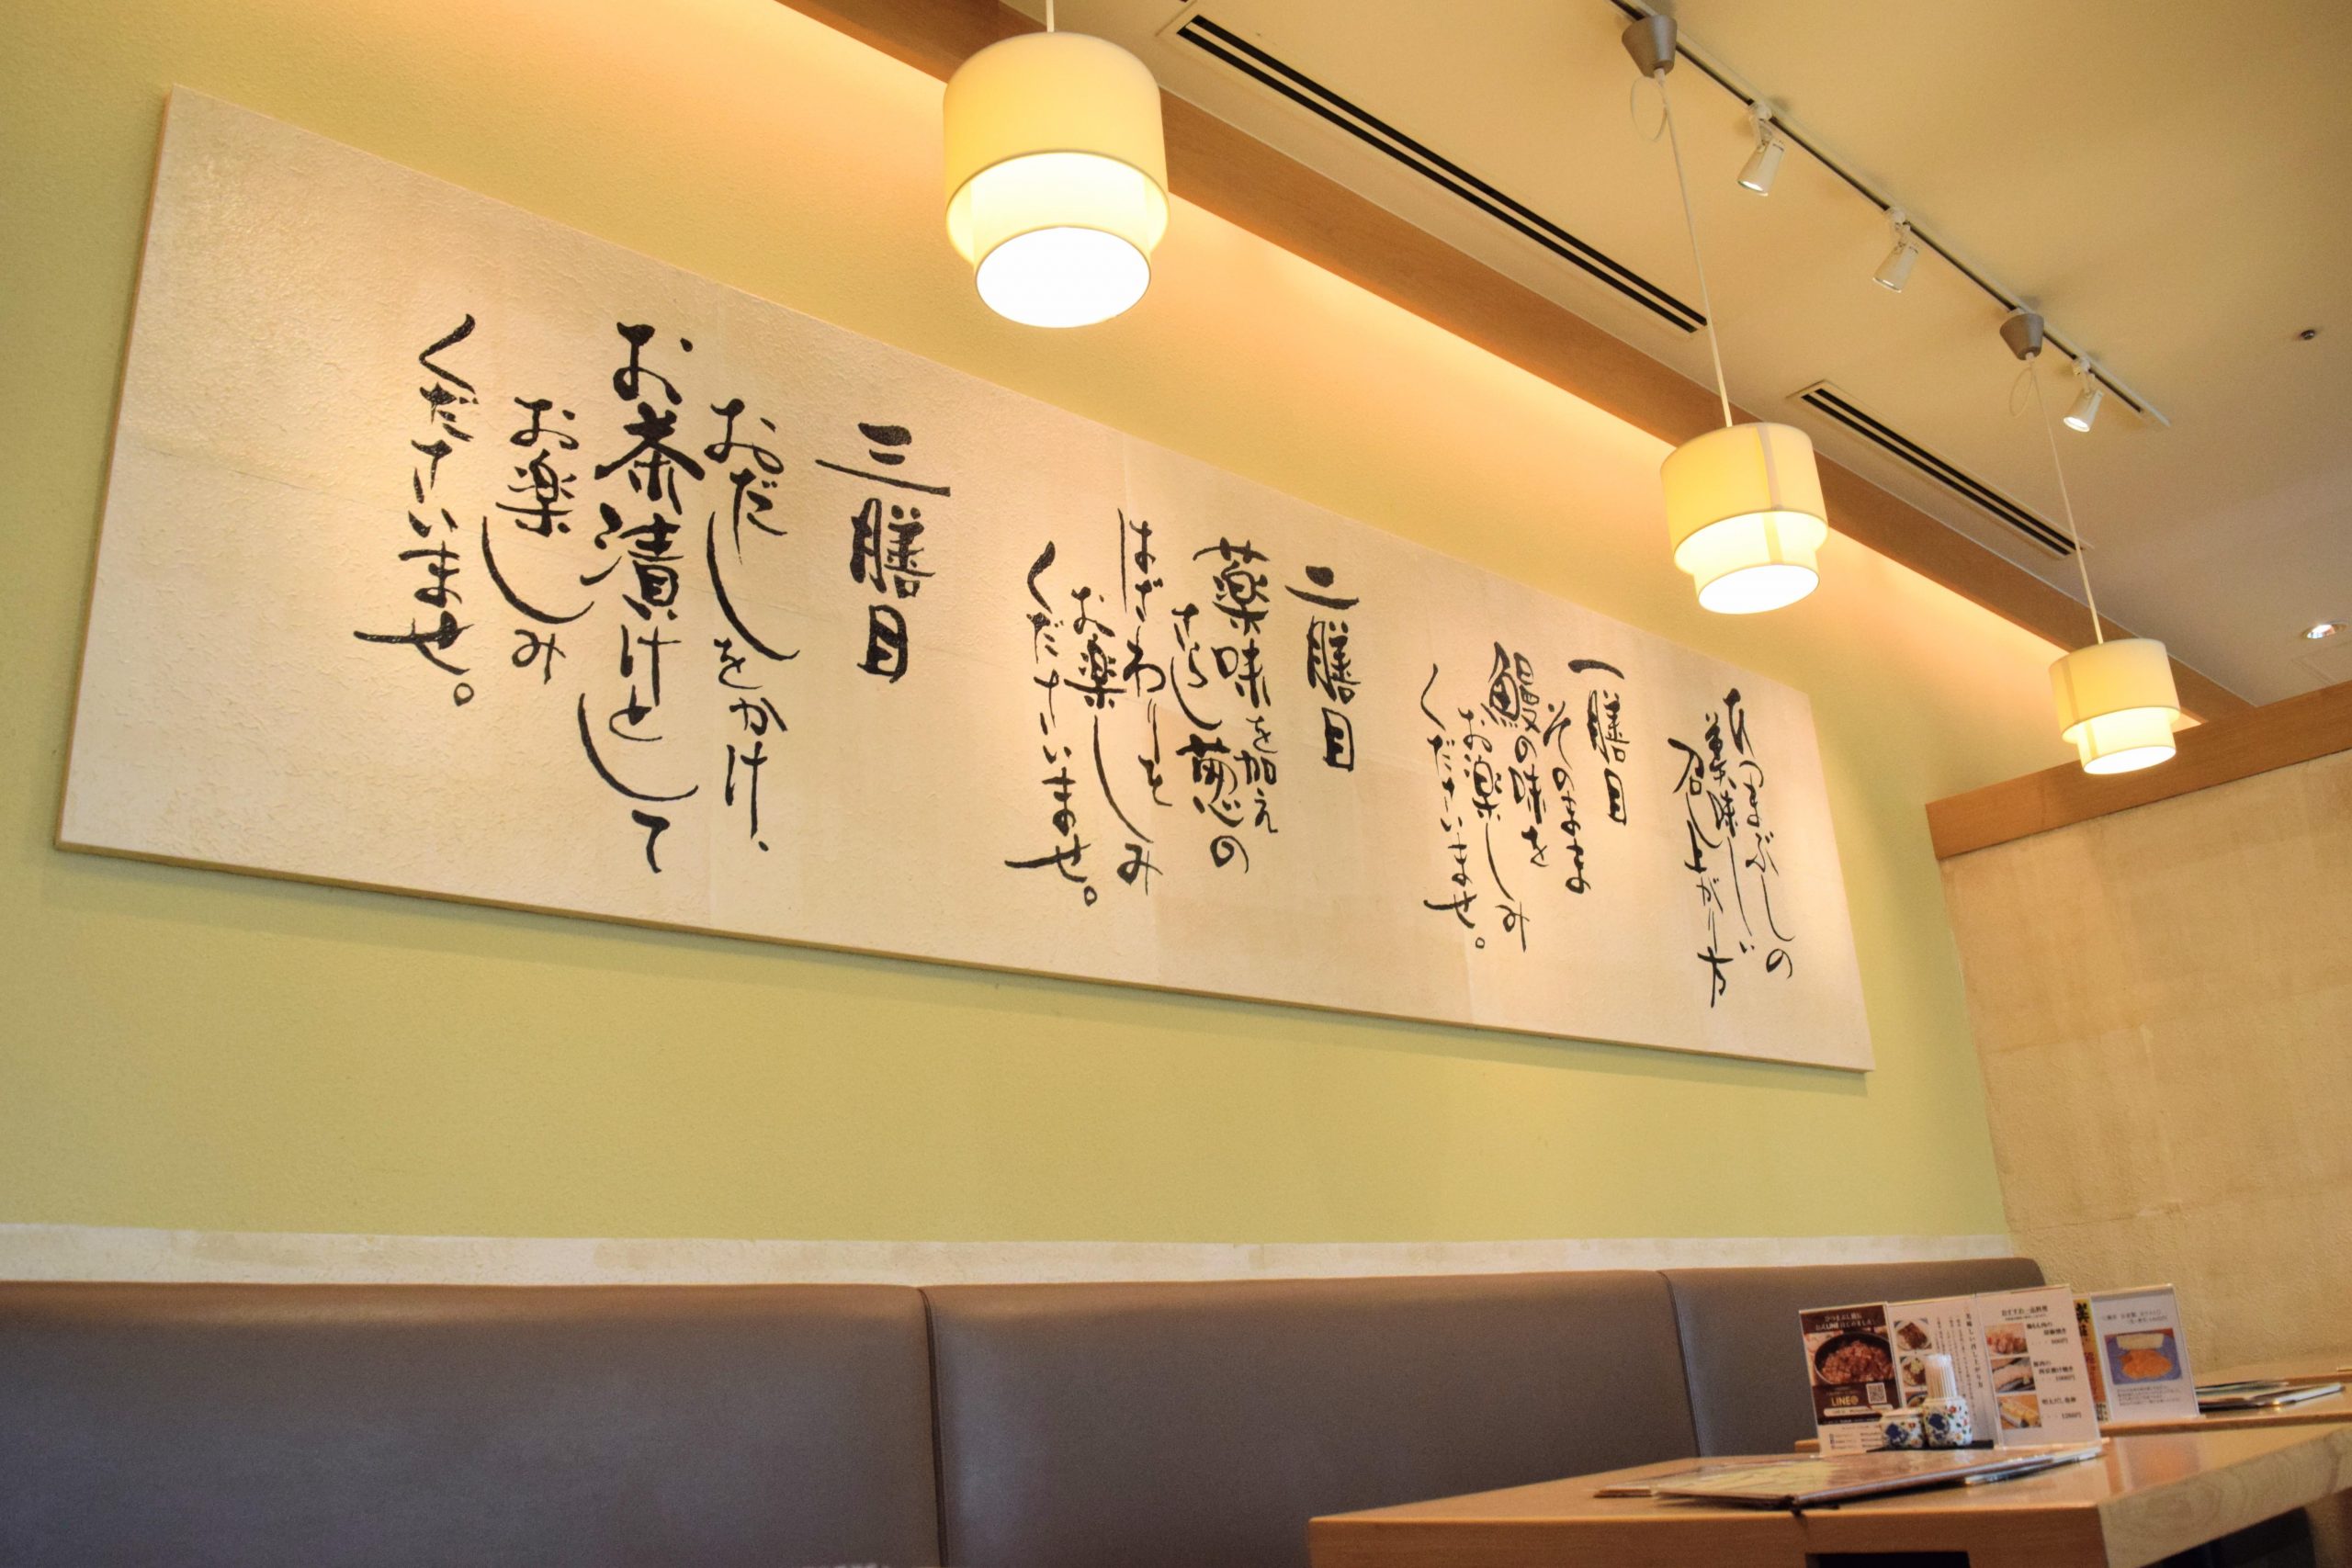 ひつまぶしの
美味しい
召し上がり方
一膳目
そのままの
鰻の味を
お楽しみ
くださいませ。
二膳目
薬味を加え
さらし葱の
はざわりを
お楽しみ
くださいませ。
三膳目
おだしをかけ、
お茶漬けとして
お楽しみ
くださいませ。
LINE@
おすすめ一品料理